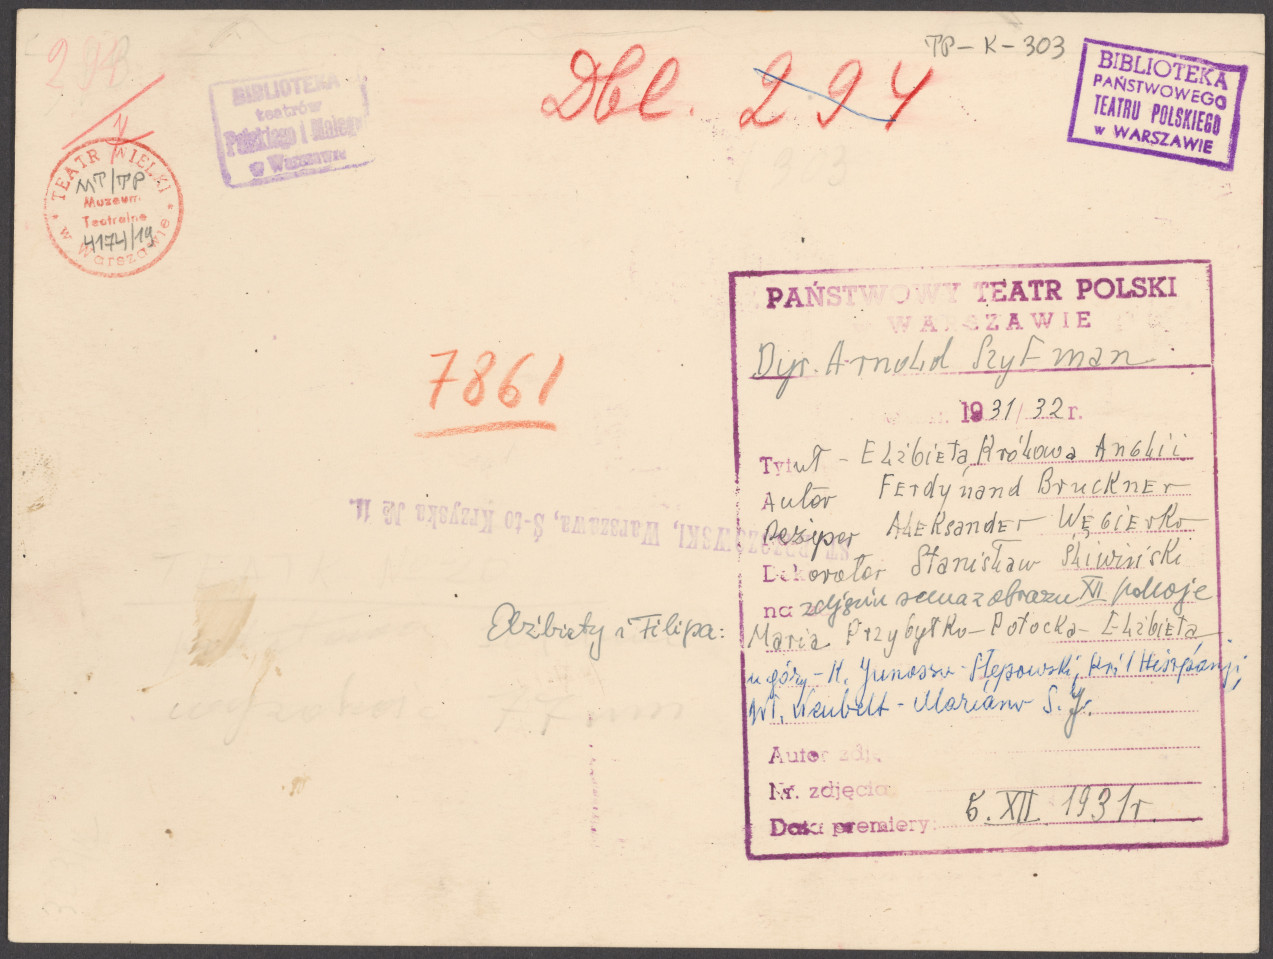 TP-K-303
298
Dbl. 294
BIBLIOTEKA
PAŃSTWOWEGO
TEATRU POLSKIEGO
w WARSZAWIE
BIBLIOTEKA
teatrów
Polskiego i Małego
w Warszawie
TEATR WIELKI
MT/TP
Muzeum
Teatralne
4174/19
w Warszawie
PAŃSTWOWY TEATR POLSKI
WARSZAWIE
Dyr. Arnold Szyfman
1931/32 r.
7861
Tytuł - Elżbieta Królowa Anglii
Autor Ferdynand Bruckner
Reżyser Aleksander Węgierko
Warszawa, Ś-to Krzyska № 11.
Dekorator Stanisław Śliwiński
na zdjęciu scena z obrazu XII pokoje
Elżbiety i Filipa:
Maria Przybyłko-Potocka - Elżbieta
u góry - K. Junosza-Stępowski, Król Hiszpanji,
Wł. Neubelt - Mariano S. J.
Autor zdj.
Nr. zdjęcia
Data premiery: 5. XII 1931 r.